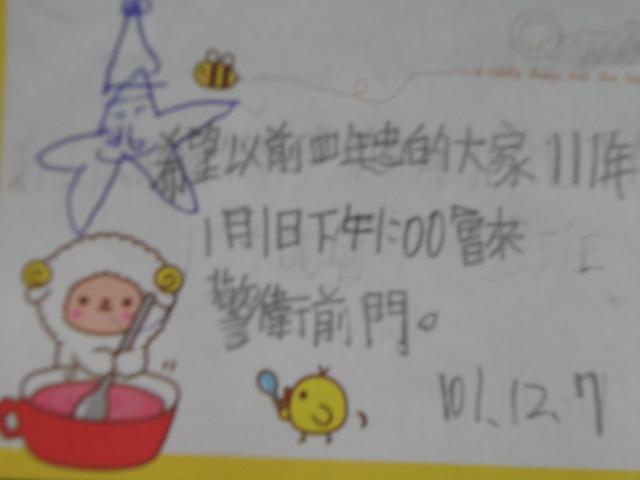 希望以前四年忠的大家111年
1月1日下午1:00會來
警衛前門。
101.12.7